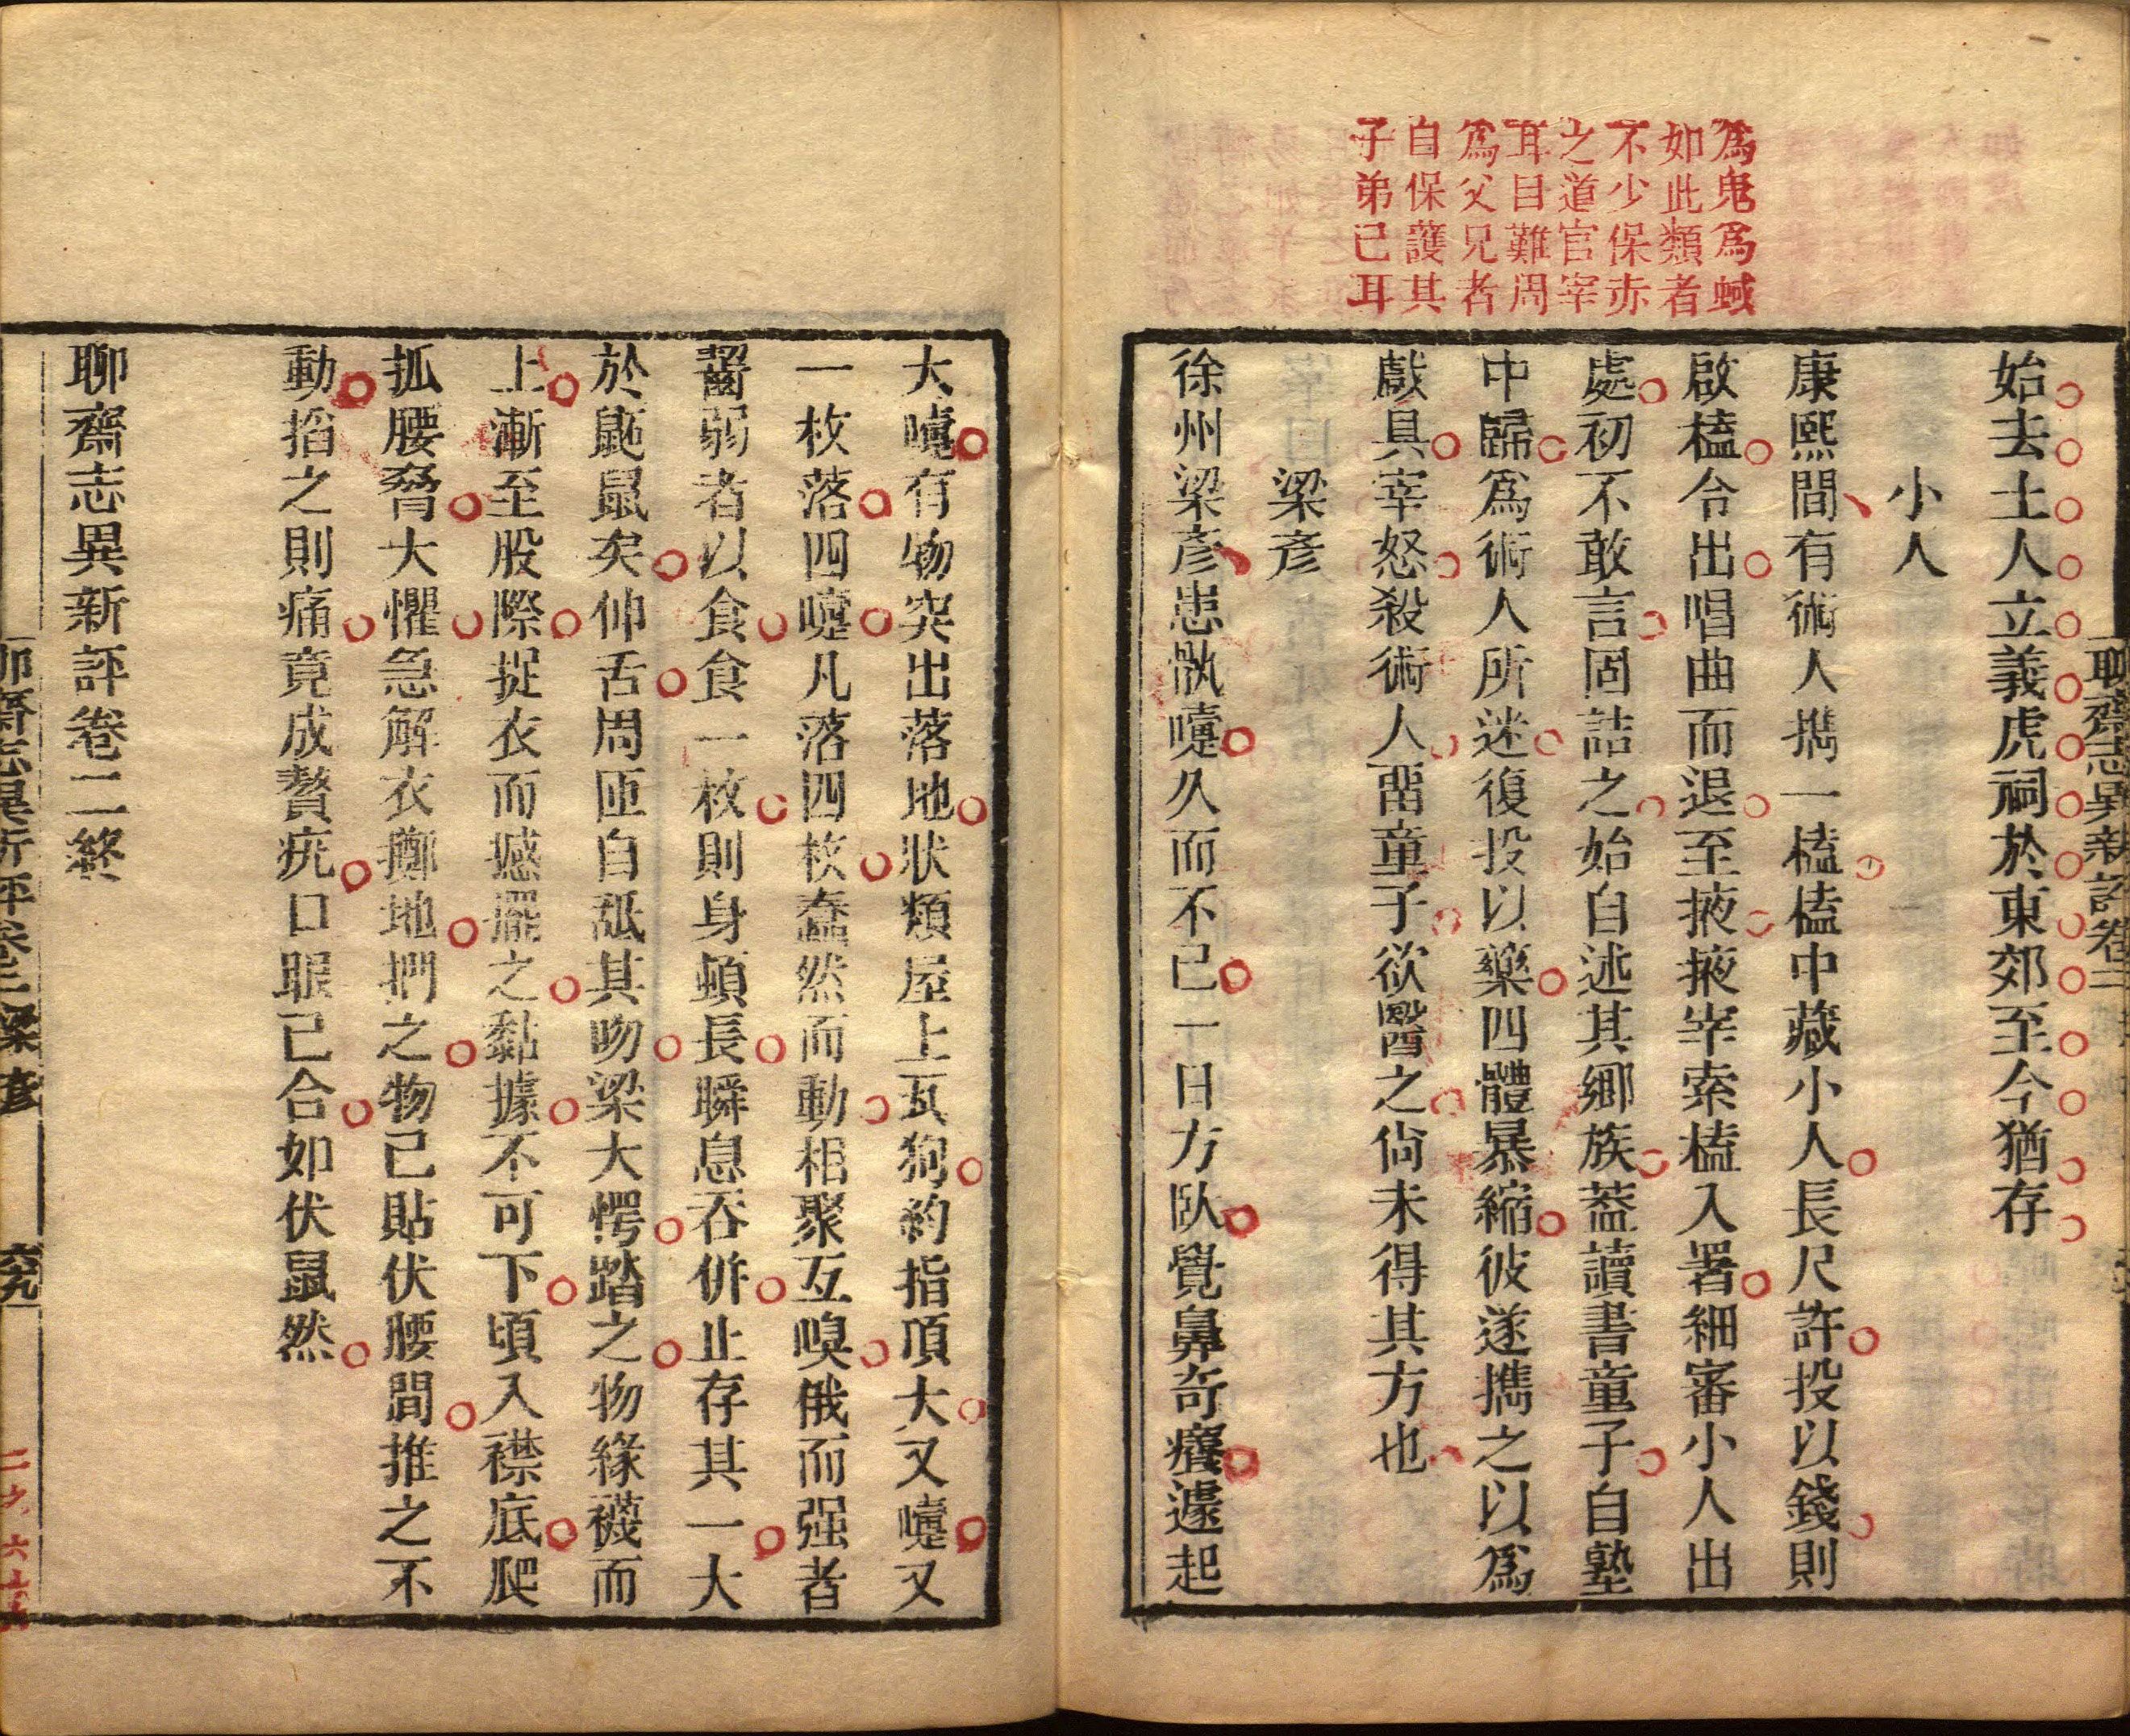 為鬼為蜮
如此類者
不少保赤
之道官宰
耳目難周
為父兄者
自保護其
子弟已耳
始去土人立義虎祠於東郊至今猶存
小人
康熙間有術人擕一榼榼中藏小人長尺許投以錢則
啟榼令出唱曲而退至掖掖宰索榼入署細審小人出
處初不敢言固詰之始自述其鄉族葢讀書童子自塾
中歸爲術人所迷復投以藥四體暴縮彼遂擕之以爲
戲具宰怒殺術人畱童子欲醫之尙未得其方也
梁彥
徐州梁彥患鼽嚏久而不已一日方臥覺鼻奇癢遽起
大嚏有物突出落地狀類屋上瓦狗約指頂大又嚏又
一枚落四嚏凡落四枚蠢然而動相聚互嗅俄而强者
齧弱者以食食一枚則身頓長瞬息吞併止存其一大
於鼫鼠矣伸舌周匝自舐其吻梁大愕踏之物緣襪而
上漸至股際捉衣而撼擺之黏據不可下頃入襟底爬
抓腰脅大懼急解衣擲地捫之物已貼伏腰間推之不
動掐之則痛竟成贅疣口眼已合如伏鼠然
聊齋志異新評卷二終
聊齋志異新評卷二 梁彥 六九